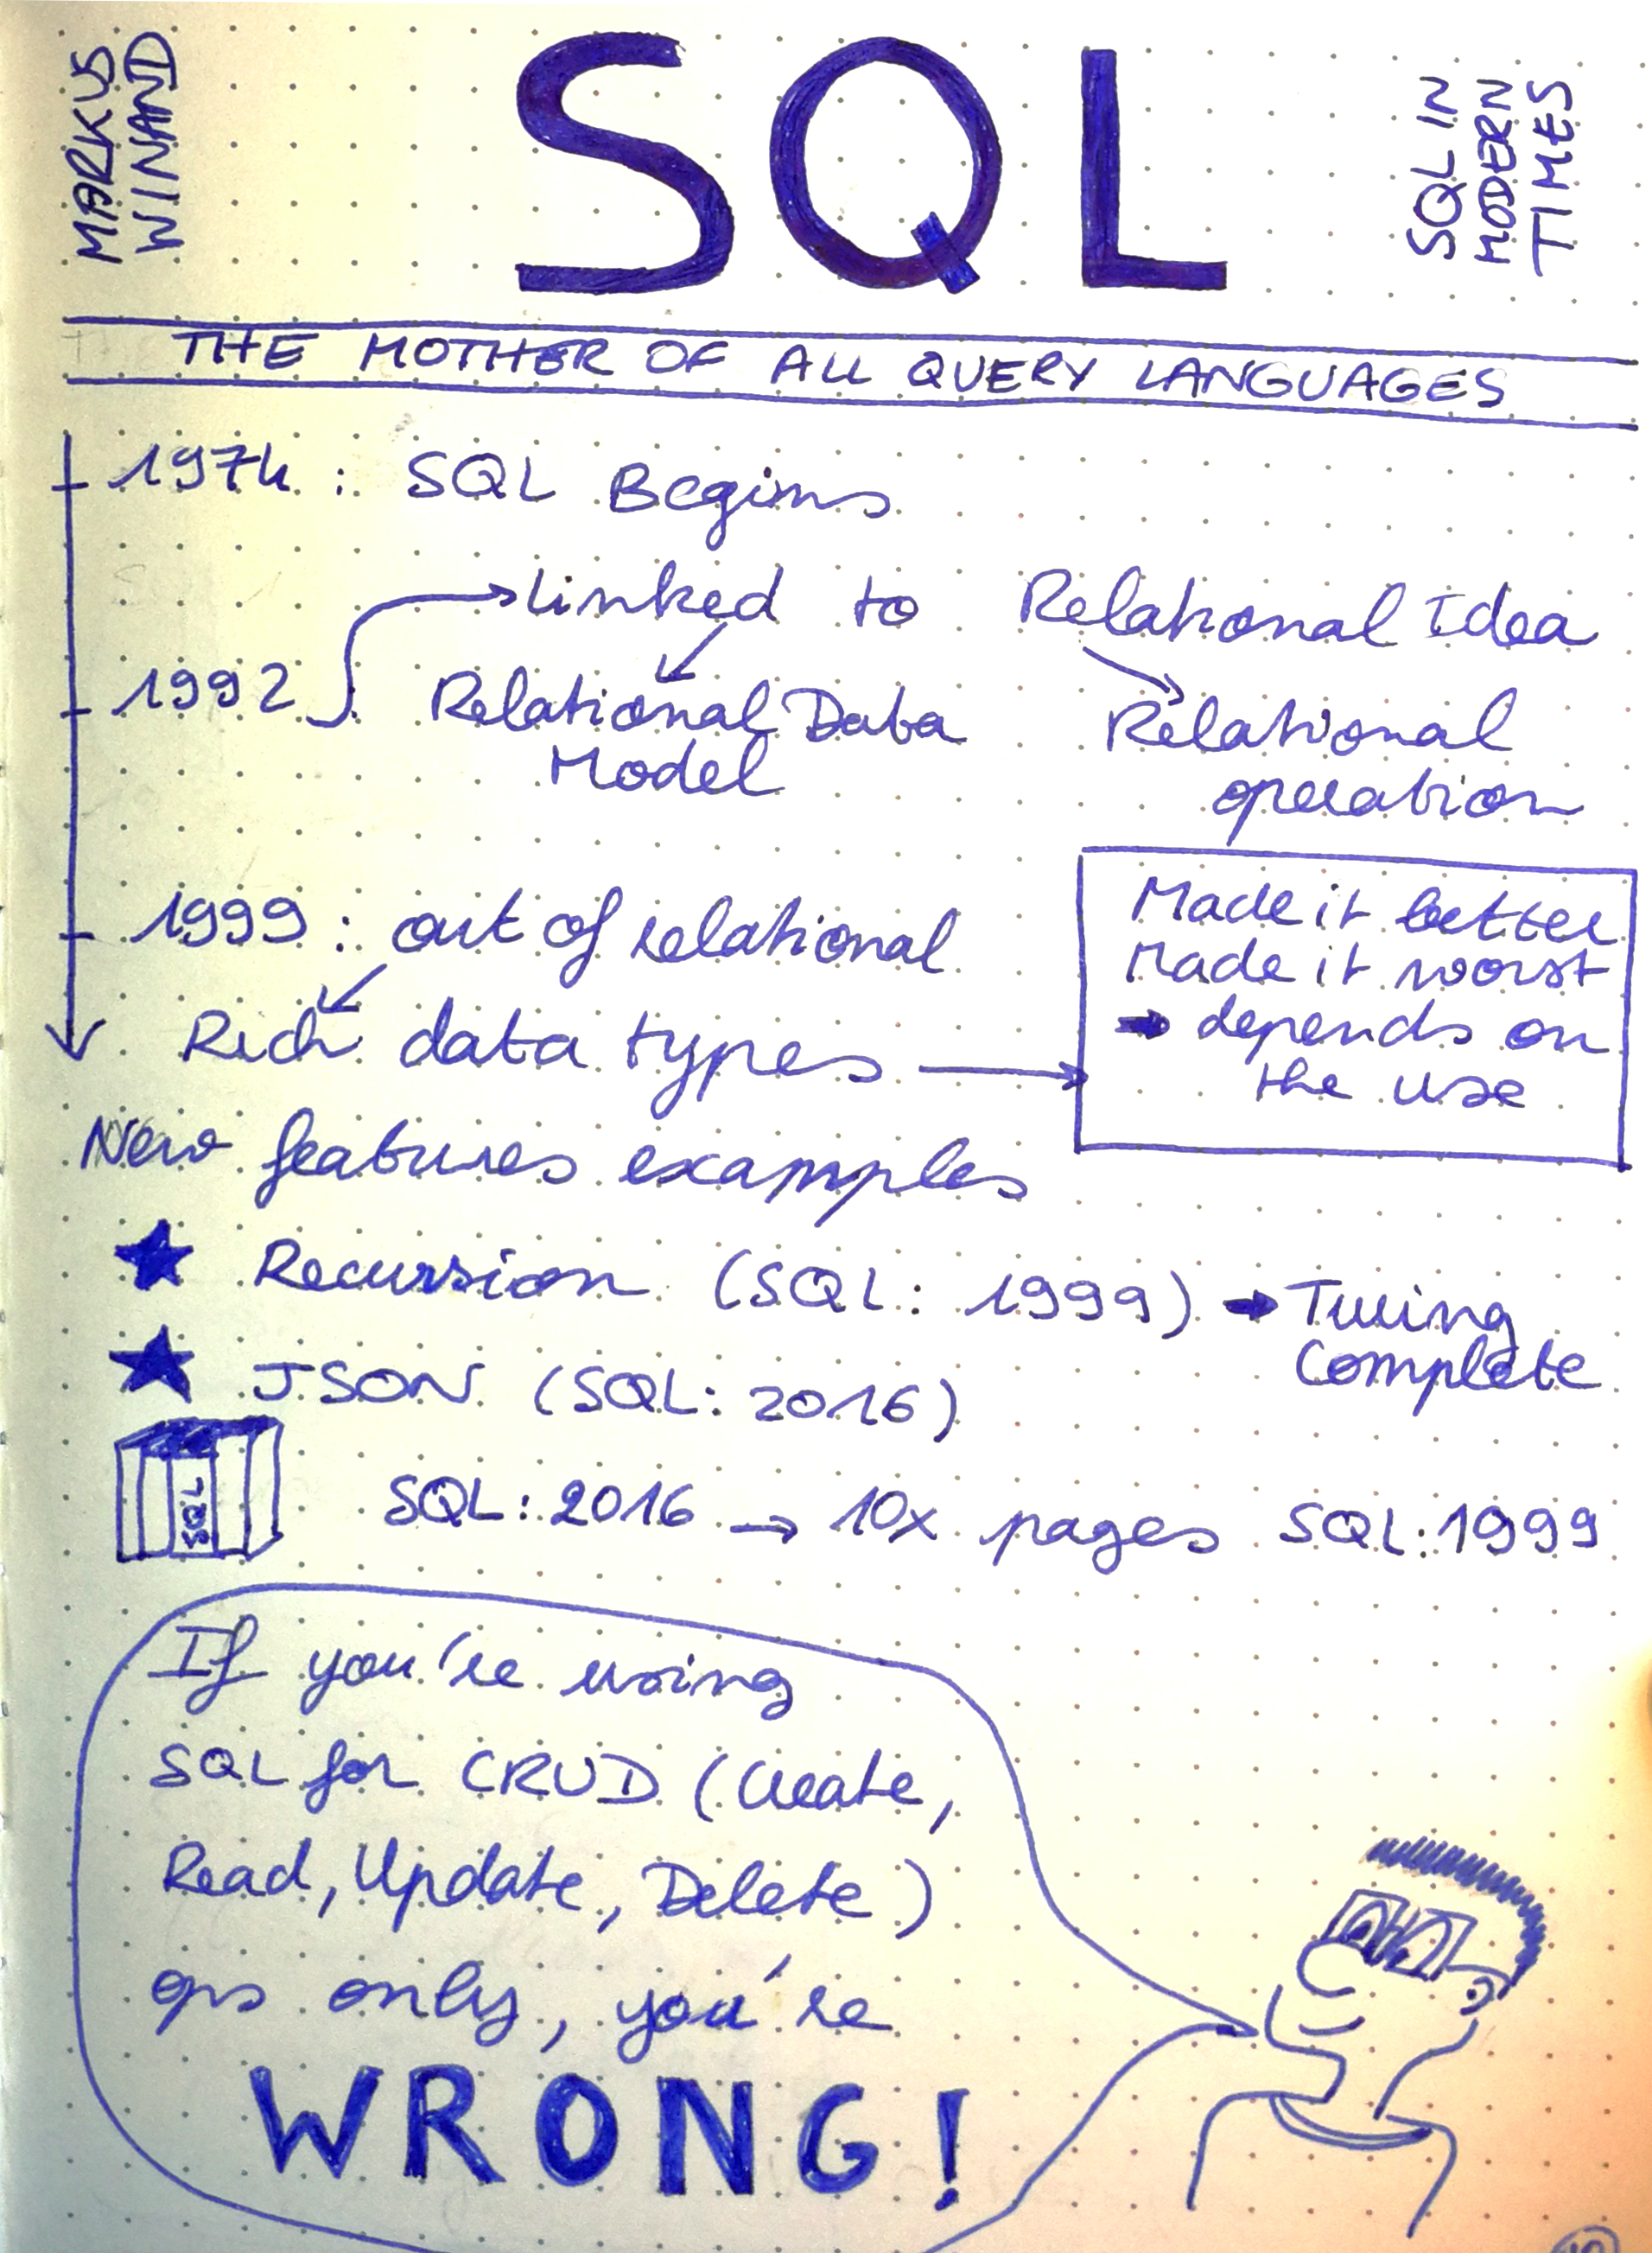 MARKUS
WINAND
SQL
SQL IN
MODERN
TIMES
THE MOTHER OF ALL QUERY LANGUAGES
1974 : SQL Begins
linked to Relational Idea
1992
Relational Data
Model
Relational
operation
1999 : out of relational
Rich data types
Made it better
Made it worst
→ depends on
the use
New features examples
★ Recursion (SQL: 1999) → Turing
Complete
★ JSON (SQL: 2016)
SQL
SQL: 2016 → 10x pages SQL: 1999
If you're using
SQL for CRUD (Create,
Read, Update, Delete)
ops only, you're
WRONG!